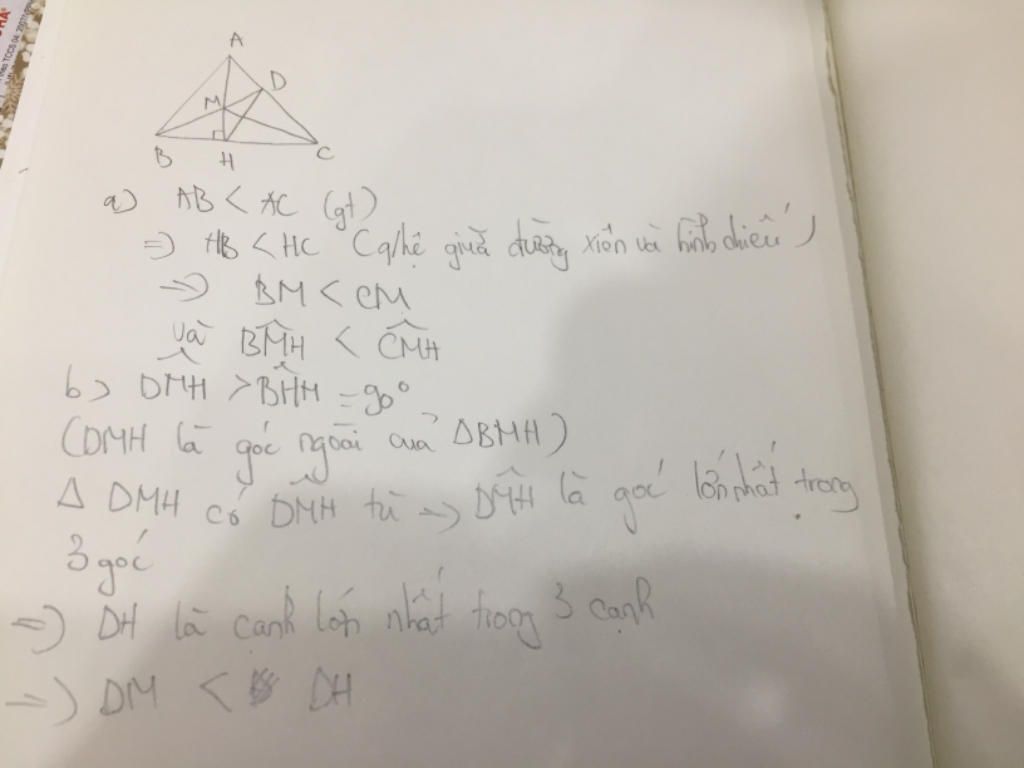 A
D
M
B
H
C
a) AB < AC (gt)
=> HB < HC (q/hệ giữa đường xiên và hình chiếu)
=> BM < CM
và BM̂H < CM̂H
b) DM̂H > BĤM = 90°
(DMH là góc ngoài của ΔBMH)
Δ DMH có DM̂H tù => DM̂H là góc lớn nhất trong
3 góc
=> DH là cạnh lớn nhất trong 3 cạnh
=> DM < DH